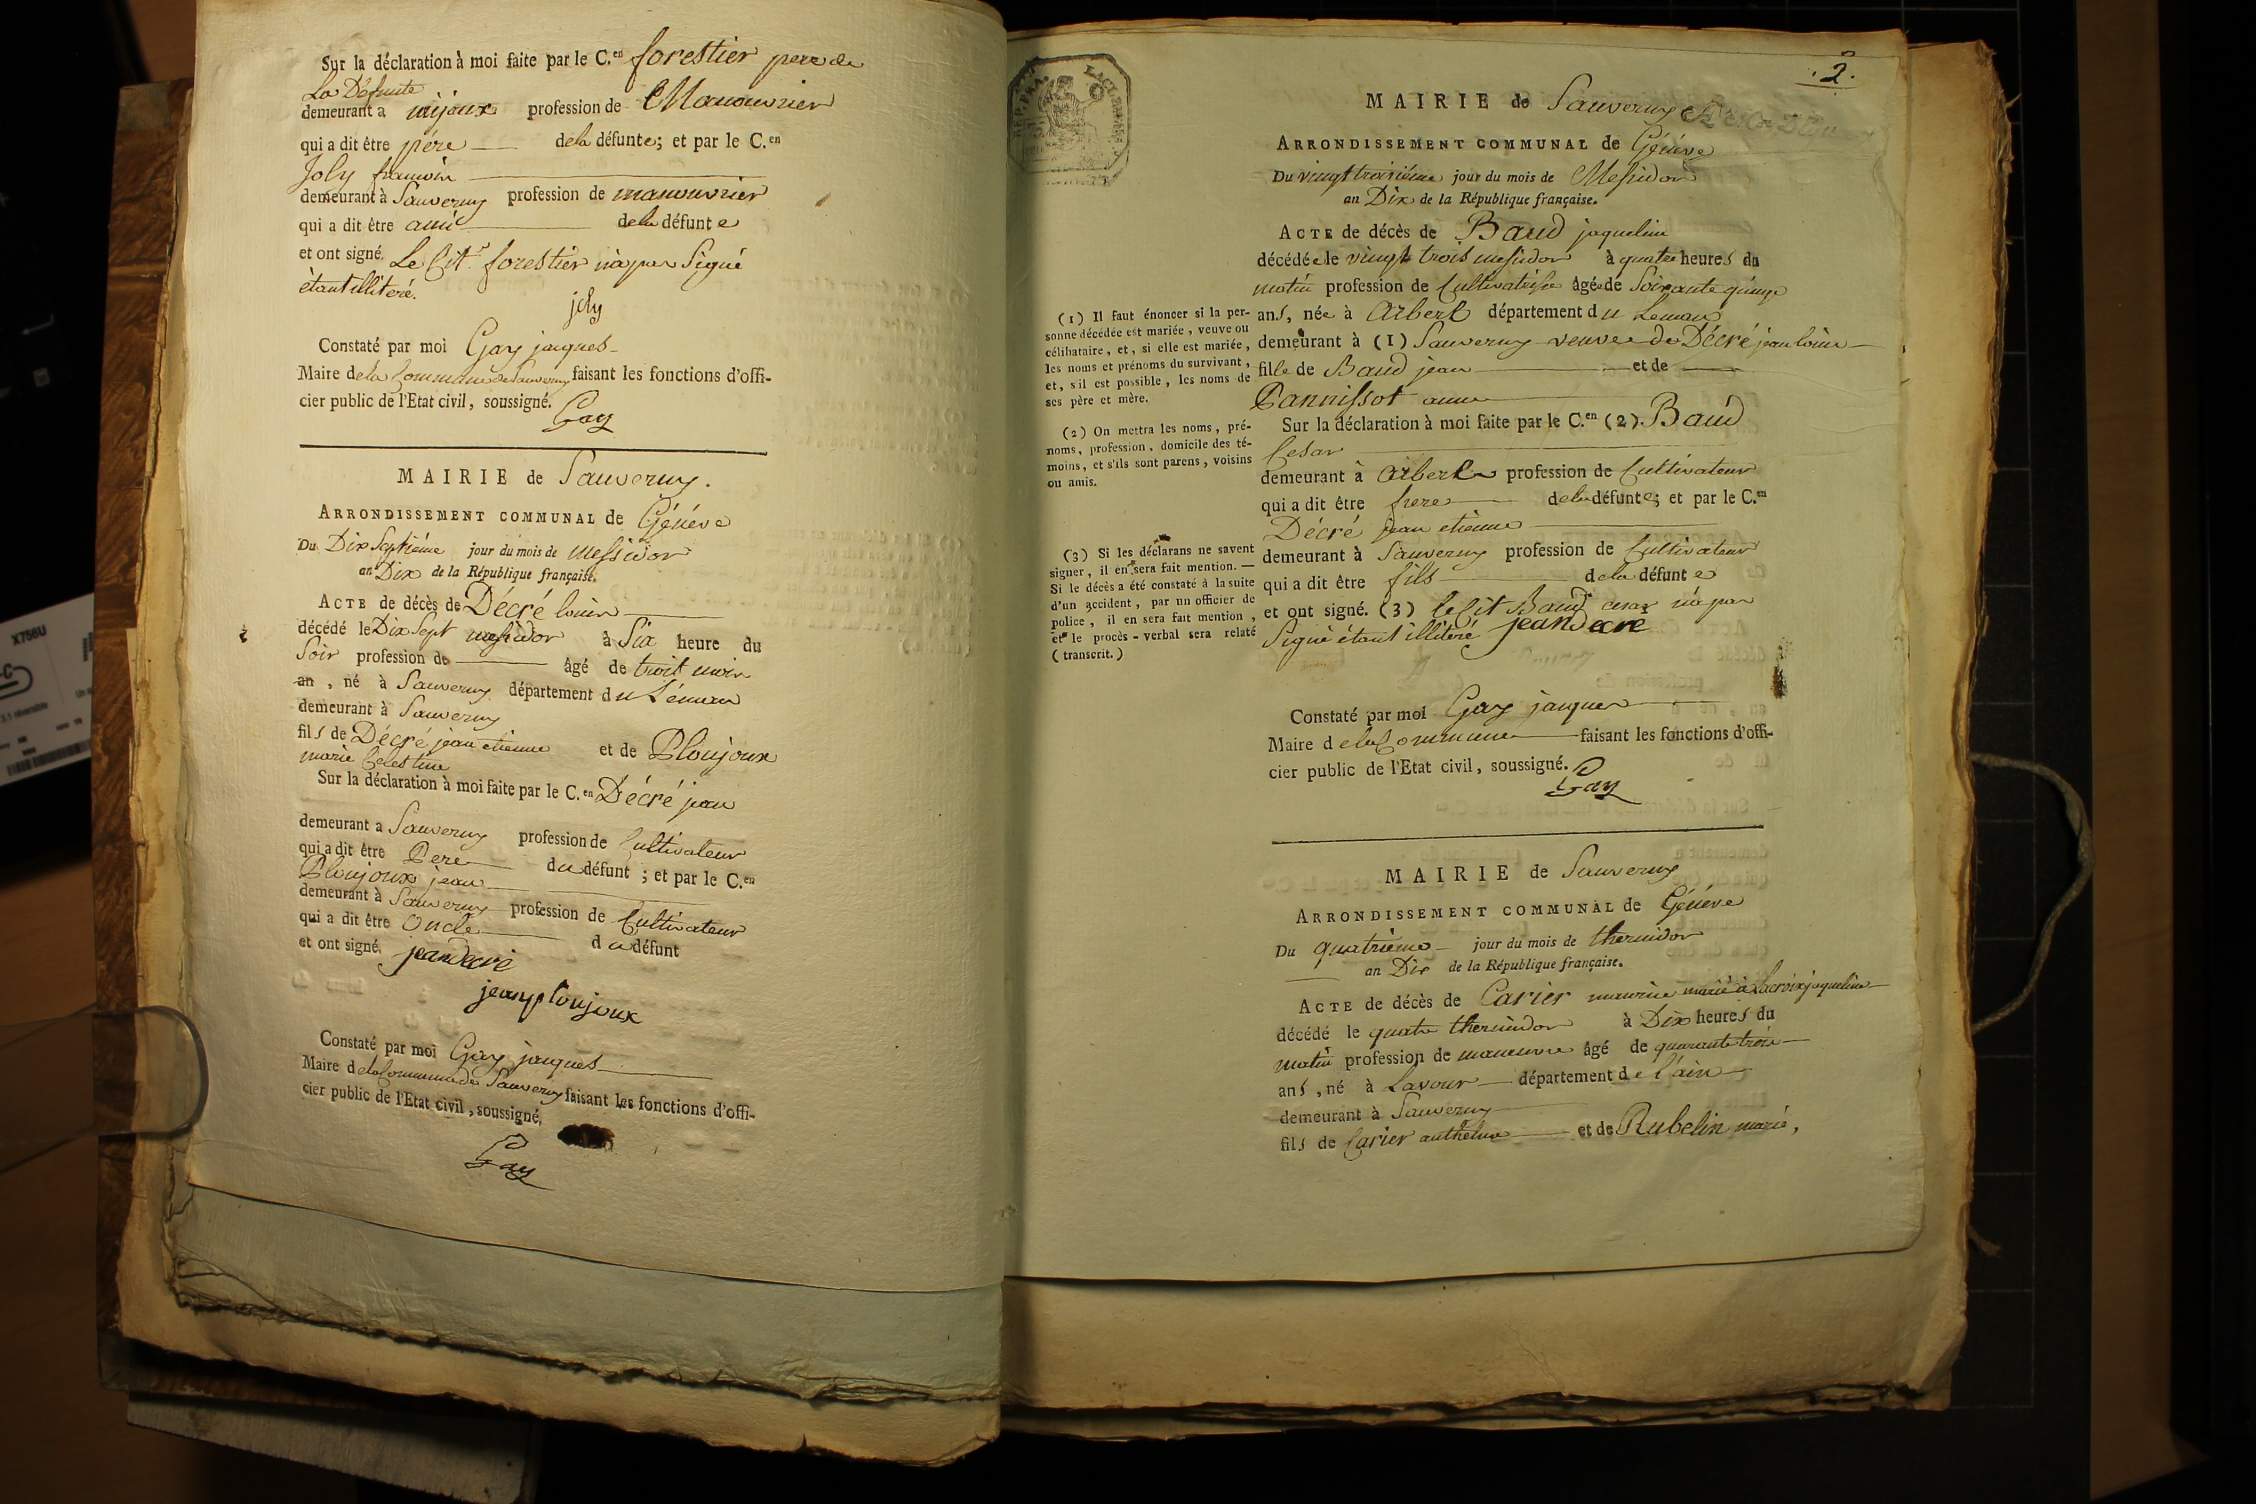 Sur la déclaration à moi faite par le C.en forestier pere de
La Défunte
demeurant a mijoux profession de Manouvrier
qui a dit être pére de la défunte; et par le C.en
Joly francois
demeurant à Sauverny profession de manouvrier
qui a dit être ami de la défunte
et ont signé. Le Cit. forestier n'a pas Signé
étant illiteré.
joly
Constaté par moi Gay jacques
Maire de la Commune de Sauverny faisant les fonctions d'offi-
cier public de l'Etat civil, soussigné.
Gay
MAIRIE de Sauverny.
ARRONDISSEMENT COMMUNAL de Généve
Du Dix Septiéme jour du mois de Messidor
an Dix de la République française.
ACTE de décès de Décré louis
décédé le Dix Sept messidor à Six heure du
Soir profession de âgé de troit mois
an, né à Sauverny département du Léman
demeurant à Sauverny
fils de Décré jean etienne et de Ploujoux
marie Celestine
Sur la déclaration à moi faite par le C.en Décré jean
demeurant a Sauverny profession de Cultivateur
qui a dit être Pere du défunt; et par le C.en
Ploujoux jean
demeurant à Sauverny profession de Cultivateur
qui a dit être Oncle du défunt
et ont signé. jean decré
jean ploujoux
Constaté par moi Gay jacques
Maire de la Commune de Sauverny faisant les fonctions d'offi-
cier public de l'Etat civil, soussigné,
Gay
.2.
RÉP. FRA.
MAIRIE de Sauverny
ARRONDISSEMENT COMMUNAL de Généve
Du vingt troisiéme jour du mois de Messidor
an Dix de la République française.
ACTE de décès de Baud jaqueline
décédée le vingt trois messidor à quatre heures du
matin profession de Cultivatrise âgée de Soixante quinze
ans, née à Arbert département du Leman
demeurant à (1) Sauverny veuve de Décré jean louis
fille de Baud jean et de
Pannissot anne
Sur la déclaration à moi faite par le C.en (2) Baud
Cesar
demeurant à Arbert profession de Cultivateur
qui a dit être frere de la défunte; et par le C.en
Décré jean etienne
demeurant à Sauverny profession de Cultivateur
qui a dit être fils de la défunte
et ont signé. (3) le Cit Baud cesar n'a pas
Signé étant illiteré jean decre
(1) Il faut énoncer si la per-
sonne décédée est mariée, veuve ou
célibataire, et, si elle est mariée,
les noms et prénoms du survivant,
et, s'il est possible, les noms de
ses père et mère.
(2) On mettra les noms, pré-
noms, profession, domicile des té-
moins, et s'ils sont parens, voisins
ou amis.
(3) Si les déclarans ne savent
signer, il en sera fait mention. —
Si le décès a été constaté à la suite
d'un accident, par un officier de
police, il en sera fait mention,
et le procès-verbal sera relaté
(transcrit.)
Constaté par moi Gay jacques
Maire de la Commune faisant les fonctions d'offi-
cier public de l'Etat civil, soussigné.
Gay
MAIRIE de Sauverny
ARRONDISSEMENT COMMUNAL de Généve
Du quatriéme jour du mois de thermidor
an Dix de la République française.
ACTE de décès de Carier maurice marié à Lacroix jaqueline
décédé le quatre thermidor à Dix heures du
matin profession de manœuvre âgé de quarante trois
ans, né à Lavour département de l'ain
demeurant à Sauverny
fils de Carier anthelme et de Rubelin marie,